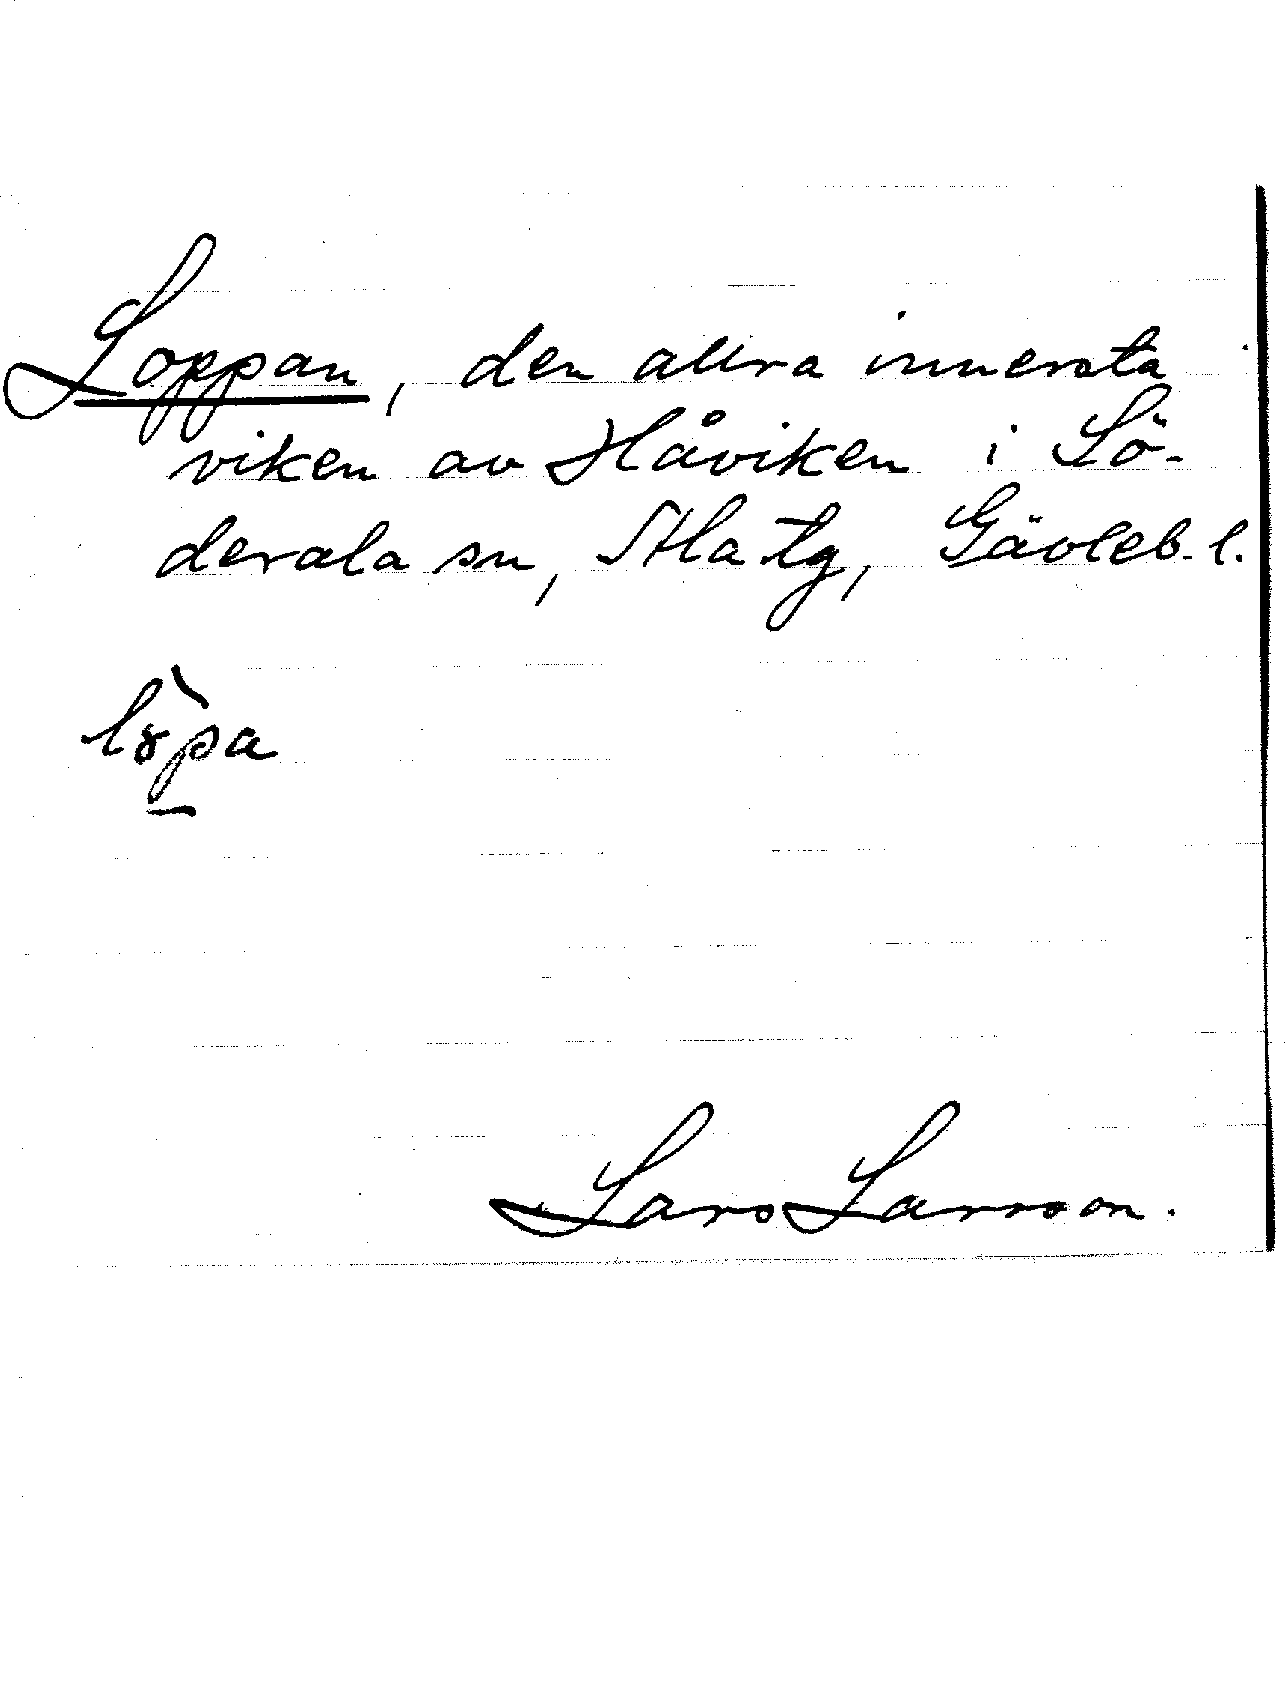 Loppan, den allra innersta
viken av Håviken i Sö-
derala sn, Ala tg, Gävleb. l.
lo᷅pa
Lars Larsson.